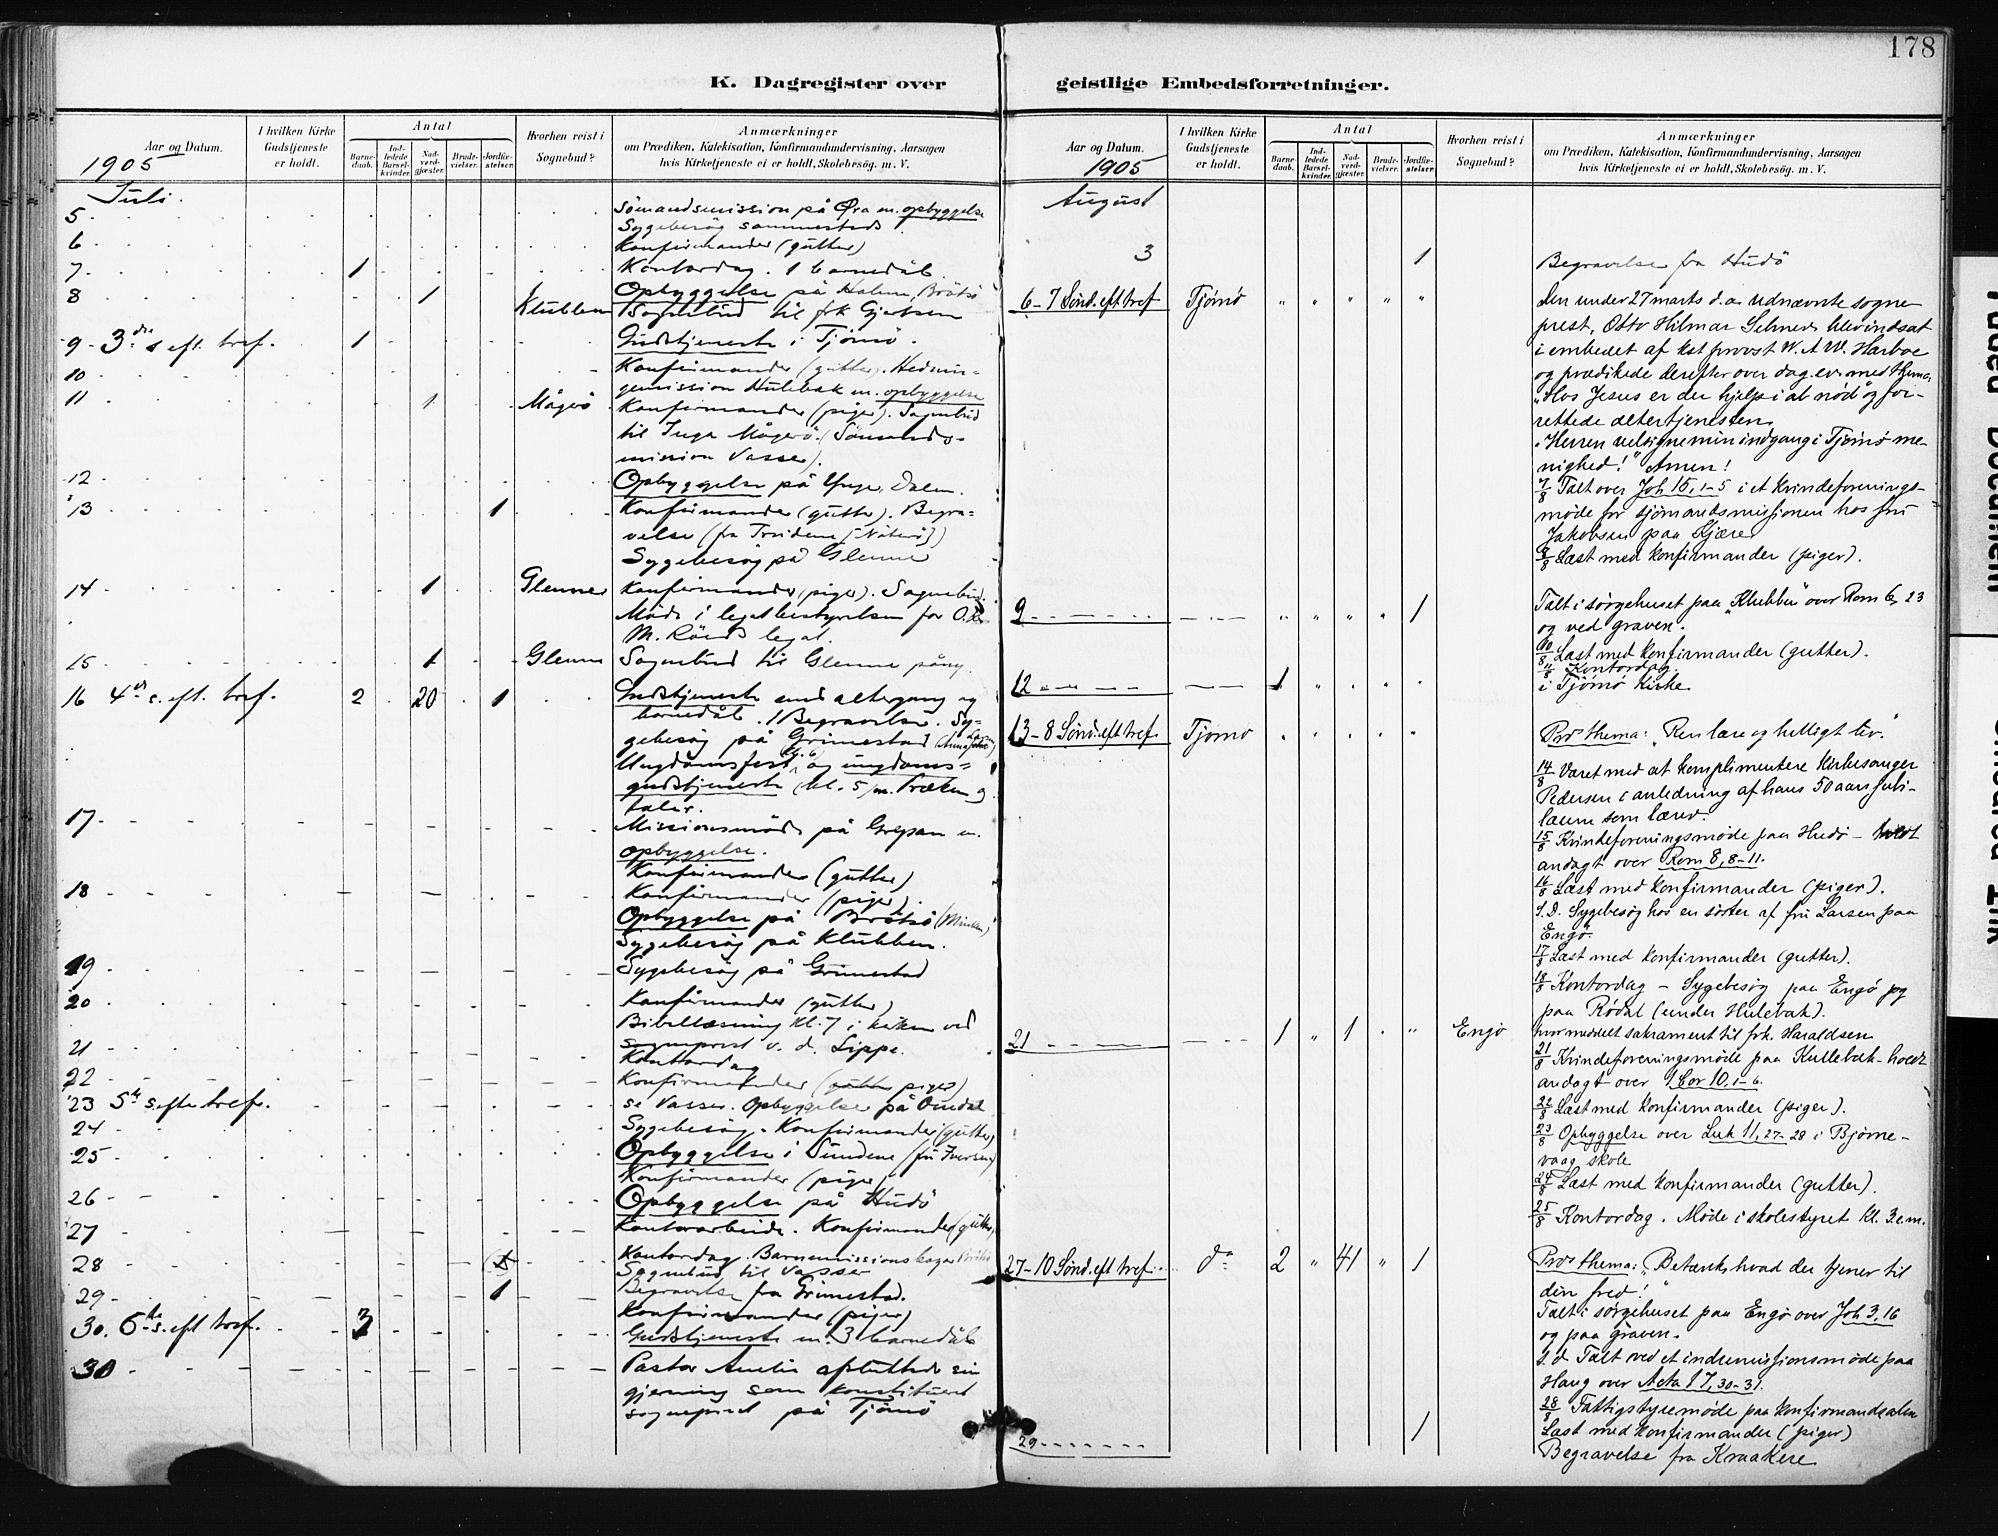 178
K. Dagregister over geistlige Embedsforretninger.
Aar og Datum.
I hvilken Kirke Gudstjeneste er holdt.
Antal
Barnedaab.
Indledede Barselkvinder.
Nadverdgjæster.
Brudevielser.
Jordfæstelser.
Hvorhen reist i Sognebud?
Anmærkninger
om Prædiken, Katekisation, Konfirmandundervisning, Aarsagen
hvis Kirketjeneste ei er holdt, Skolebesøg. m. V.
1905
Juli.
5 Sömandsmission på Øra m. opbyggelse
Sygebesög sammesteds
6 Konfirmander (gutter)
7 1 Kontordag. 1 barnedåb.
8 Opbyggelse på Holmen, Bråtsö
1 Klubben Sognebud til frk
9 - 3die s. eft. tref. 1 Gudstjeneste i Tjömö.
10 Konfirmander (gutter). Hednin-
gemission Hulebak m. opbyggelse
11 1 Mågerö Konfirmander (piger). Sognebud
til Inga Mågerö. (Sömands-
mission Vasser).
12 Opbyggelse på Yxge, Dalen.
13 1 Konfirmander (gutter). Begra-
velse (fra
Sygebesög på Glenne
14 1 Glenne Konfirmander (piger). Sognebud.
Möde i legatbestyrelsen for O. &
M. Röeds legat.
15 1 Glenne Sognebud til Glenne påny.
16 4de s. eft. tref. 2 20 1 Gudstjeneste med altergang og
barnedåb. 1 Begravelse. Sy-
gebesög på Grimestad
Ungdomsfest kl. 6 og ungdoms-
gudstjeneste (kl. 5 m. Præken og
taler.
17 Missionsmöde på Grepan m.
opbyggelse.
Konfirmander (gutter)
18 Konfirmander (piger).
Opbyggelse på Bråtsö
Sygebesög på Klubben.
19 Sygebesög på Grimestad
20 Konfirmander (gutter)
Bibellæsning kl. 7 i kirken ved
21 sogneprest v. d. Lippe.
Kontordag
22 Konfirmander (gutter piger)
23 5te s. efter tref. se Vasser. Opbyggelse på Omdal
24 Sygebesög. Konfirmander (gutter)
25 Opbyggelse i Sundene (fru Iversen)
Konfirmander (piger)
26 Opbyggelse på Hudö
27 Kontorarbeide. Konfirmander (gutter)
28 Kontordag. Barnemissions
Sognebud til Vasser
29 1 Begravelse fra Grimestad.
Konfirmander (piger)
30. 6te s. eft tref. 3 Gudstjeneste m. 3 barnedåb
30 Pastor afsluttede sin
gjerning som konstitueret
sogneprest på Tjömö
Aar og Datum.
I hvilken Kirke Gudstjeneste er holdt.
Antal
Barnedaab.
Indledede Barselkvinder.
Nadverdgjæster.
Brudevielser.
Jordfæstelser.
Hvorhen reist i Sognebud?
Anmærkninger
om Prædiken, Katekisation, Konfirmandundervisning, Aarsagen
hvis Kirketjeneste ei er holdt, Skolebesøg. m. V.
1905
August
3 1 Begravelse fra Hudö
6 - 7 Sönd. eft tref Tjømø " " " " " Den under 27 marts d. a. udnævnte sogne-
prest, Otto Hilmar Selmer blev indsat
i embedet af kst provst W. A. W. Harboe
og prædikede derefter over dag. ev. med thema:
"Hos Jesus er der hjelp i al nød" og for-
rettede altertjenesten.
"Herren velsigne min indgang i Tjømø me-
nighed!" Amen!
7/8 Talt over Joh 15, 1-5 i et kvindeforenings-
møde for sjømandsmissionen hos fru
Jakobsen paa Kjære
8/8 Læst med konfirmander (piger).
9 " " " " 1 Talt i sørgehuset paa "Klubben" over Rom 6, 23
og ved graven.
10/8 Læst med konfirmander (gutter).
11/8 Kontordag.
12 1 " " " " i Tjømø Kirke
13 - 8 Sønd. eft tref. Tjømø " " " " " Pros thema: "Ren lære og helligt liv."
14/8 Været med at komplimentere Kirkesanger
Pedersen i anledning af hans 50 aars jubi-
læum som lærer.
15/8 Kvindeforeningsmøde paa Hudö - holdt
andagt over Rom 8, 8-11.
16/8 Læst med konfirmander (piger).
S. D. Sygebesøg hos en søster af fru Larsen paa
Engö.
17/8 Læst med konfirmander (gutter).
18/8 Kontordag - Sygebesøg paa Engö og
paa Rødal (under Hulebak).
21 1 " 1 " " Engö hvor meddelt sakrament til frk. Haraldsen
21/8 Kvindeforeningsmøde paa Hullebæk - holdt
andagt over 1 Cor 10, 1-6.
22/8 Læst med konfirmander (piger).
23/8 Opbyggelse over Luk 11, 27-28 i Bjørne-
vaag skole
24/8 Læst med konfirmander (gutter).
25/8 Kontordag. Møde i skolestyret kl. 3 e.m.
27 - 10 Sønd. eft tref. do 2 " 41 " 1 Pros thema: "Betænk hvad der tjener til
din fred!"
Talt i sørgehuset paa Engö over Joh 3, 16
og paa graven.
S. d Talt ved et indremissionsmøde paa
Haug over Acta 17, 30-31.
28/8 Fattigstyremøde paa konfirmandsalen
Læst med konfirmander (piger)
29 1 Begravelse fra Kraakere